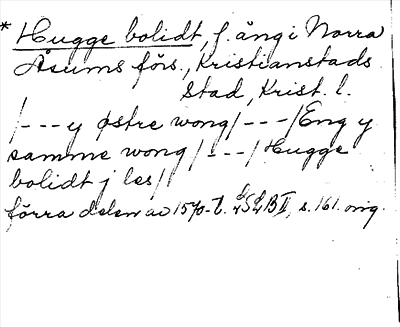 * Hugge bolidt, f. äng i Norra
Åsums förs., Kristianstads
stad, Krist. l.
/---y østre wong/---/Eng y
samme wong/---/Hugge
bolidt j les//
förra delen av 1570-t. B II, s. 161. orig.